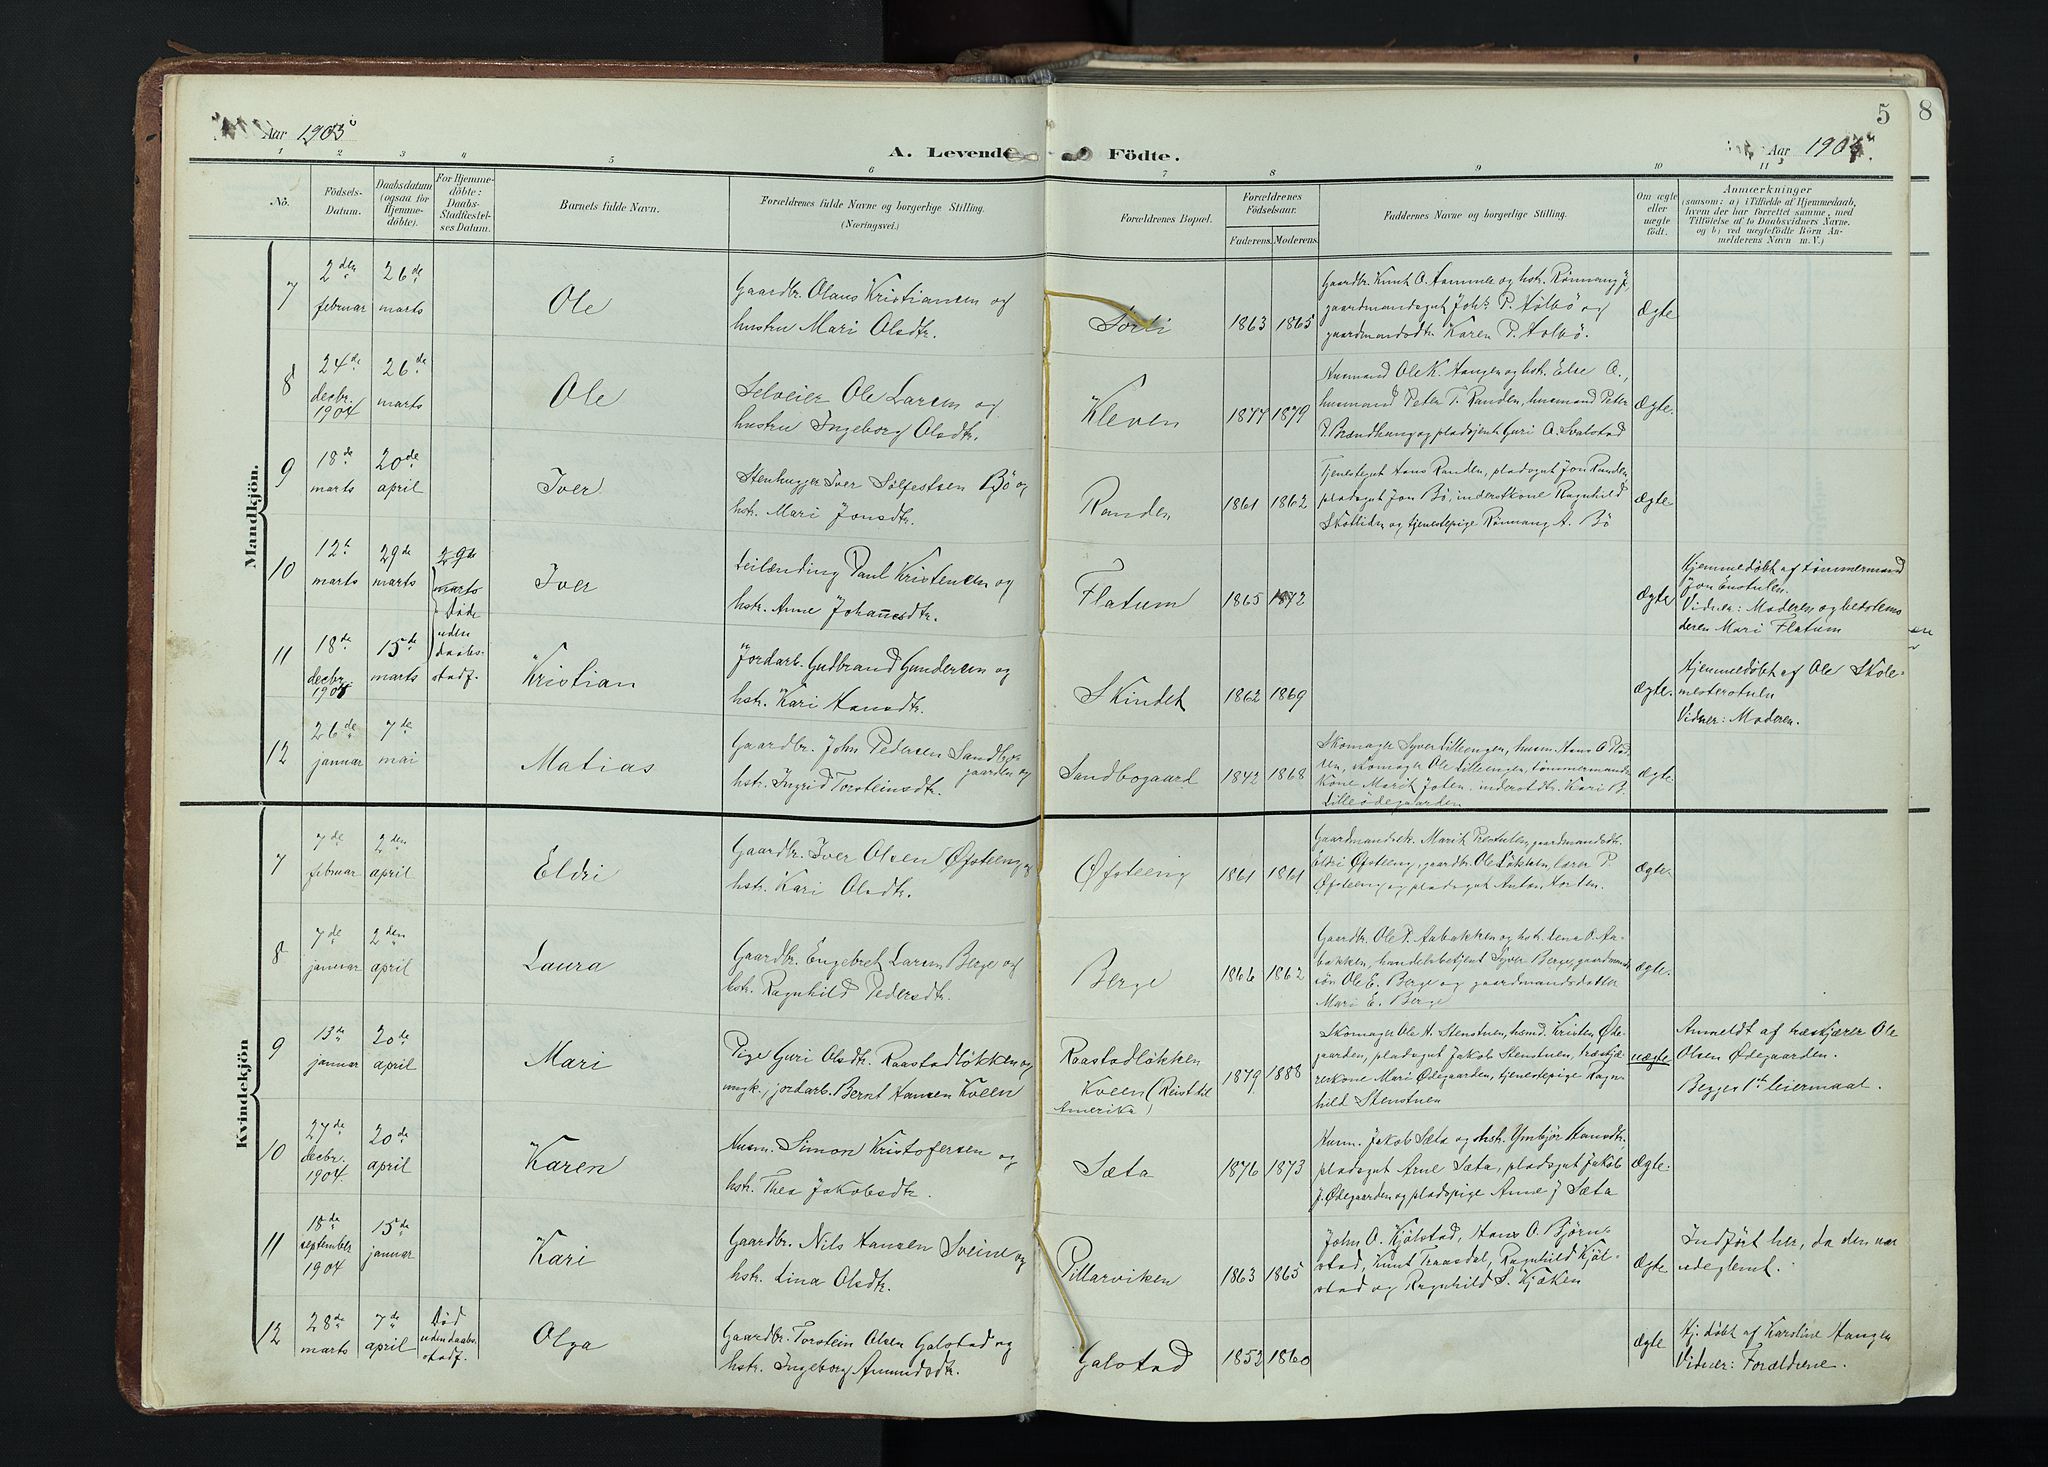 Aar 1905
A. Levende Födte.
Aar 1905.
5
8
1 2 3 4 5 6 7 8 9 10 11
No.
Födsels-Datum.
Daabsdatum (ogsaa for Hjemme-döbte).
For Hjemme-döbte: Daabs-Stadfæstel-ses Datum.
Barnets fulde Navn.
Forældrenes fulde Navne og borgerlige Stilling. (Næringsvei.)
Forældrenes Bopæl.
Forældrenes Födselsaar.
Faderens. Moderens.
Faddernes Navne og borgerlige Stilling.
Om ægte eller uægte födt.
Anmærkninger
(saasom: a) i Tilfælde af Hjemmedaab,
hvem der har forrettet samme, med
Tilföielse af to Daabsvidners Navne.
og b) ved uægtefödte Börn An-
melderens Navn m. V.)
Mandkjön.
7
2den februar
26de marts
Ole
Gaardbr. Olaus Kristiansen og
hustru Mari Olsdtr.
Sorli
1863 1865
Gaardbr. Knut O. Hammer og hstr. Rønnaug J.,
gaardmandsgut Johs. P. Holbö og
gaardmandsdtr. Karen P. Holbö.
Ægte
8
24de decbr. 1904
26de marts
Ole
Selveier Ole Larsen og
hustru Ingeborg Olsdtr.
Kleven
1877 1879
Husmand Ole K. Haugen og hst. Else O.,
husmand Peter T. Randen, husmand Peter
P. Brændhaug og pladsjente Guri O. Svalstad
Ægte
9
18de marts
20de april
Iver
Stenhugger Iver Solfestsen Bö og
hst. Mari Jonsdtr.
Randen
1861 1862
Tjenestegut Hans Randen, pladsgut Jon Randen,
pladsgut Jon Bö, inderstkone Ragnhild
Skotliden og tjenestepige Rönnaug A. Bö
Ægte
10
12te marts
29de marts
29de marts
Döde uden daabs-stadf.
Iver
Leilænding Paul Kristensen og
hst. Anne Johannesdtr.
Flatum
1865 1872
Ægte
Hjemmedöbt af tømmermand
Jon Enstulen.
Vidner: Moderen og bedstemo
deren Mari Flatum
11
18de decbr. 1904
15de marts
Kristian
Jordarb. Gudbrand Gundersen og
hstr. Kari Hansdtr.
Skindet
1862 1869
Ægte.
Hjemmedöbt af Ole Skole-
mesterstulen
Vidner: Moderen.
12
26de januar
7de mai
Matias
Gaardbr. John Pedersen Sandbo-
gaarden og
hst. Ingrid Torsteinsdtr.
Sandbogaard
1842 1868
Skomager Syver Lilleengen, husm. Hans O.
skomager Ole Lilleengen, tömmermands
kone Marit Joten, inderstdtr. Kari B.
Lilleödegaarden
Ægte
Kvindekjön
7
7de februar
2den april
Eldri
Gaardbr. Iver Olsen Öfsteeng og
hst. Kari Olsdtr.
Öfsteeng
1861 1861
Gaardmandsdtr. Marit Prestulen, gaardmandsdtr.
Eldri Öfsteeng, gaardbr. Ole Løkken, lærer P.
Öfsteeng og pladsgut Anton Horten.
Ægte
8
7de januar
2den april
Laura
Gaardbr. Engebret Larsen Berge og
hst. Ragnhild Pedersdtr.
Berge
1866 1862
Gaardbr. Ole P. Aabakken og hst. Lena O. Aa-
bakken, handelsbetjent Syver Berge, gaardmands
sön Ole E. Berge og gaardmandsdatter
Mari E. Berge
Ægte.
9
13de januar
20de april
Mari
Pige Guri Olsdtr. Raastadløkken og
ungk., jordarb. Bernt Hansen Kveen
Raastadløkken
Kveen (Reist til
Amerika)
1879 1888
Skomager Ole H. Stenstuen, hsmd. Kristen Øde-
gaarden, pladsgut Jakob Stenstuen, træskjæ-
rerkone Mari Ødegaarden, tjenestepige Ragn-
hild Stenstuen
uægte
Anmeldt af træskjærer Ole
Olsen Ødegaarden.
Begges 1ste leiermaal.
10
27de decbr. 1904.
20de april
Karen
Husm. Simon Kristofersen og
hst. Thea Jakobsdtr.
Sæta
1876 1873
Husm. Jakob Sæta og hst. Ymbjör Hansdtr.
pladsgut Arne Sæta, pladsgut Jakob
J. Ødegaarden og pladspige Anne J. Sæta
Ægte
11
18de september 1904
15de januar
Kari
Gaardbr. Nils Hansen Sveine og
hst. Lina Olsdtr.
Pillarviken
1863 1865
John O. Kjölstad, Hans O. Björn-
stad, Knut Traasdal, Ragnhild Kjöl-
stad og Ragnhild S. Kjæken
Ægte
Indfört her, da den var
udeglemt.
12
28de marts
7de april
Död uden daabs-stadf.
Olga
Gaardbr. Torstein Olsen Galstad og
hst. Ingeborg Amundsdtr.
Galstad
1852 1860
Ægte
Hj. döbt af Karoline Haugen
Vidner: Forældrene.